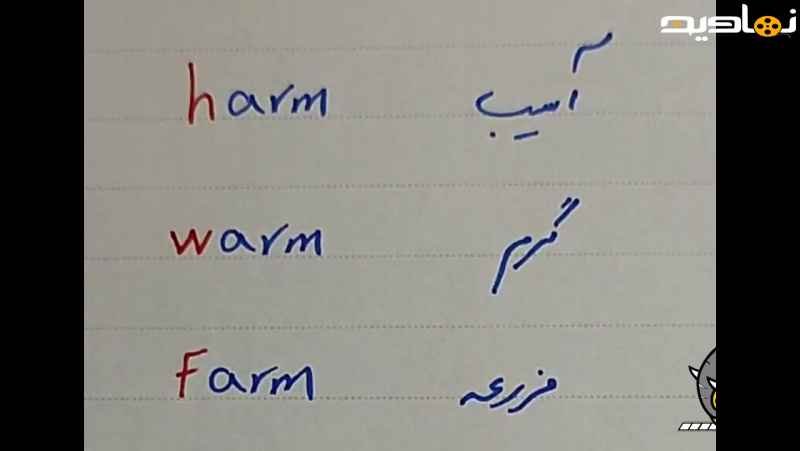 نماویه
harm آسیب
warm گرم
Farm مزرعه